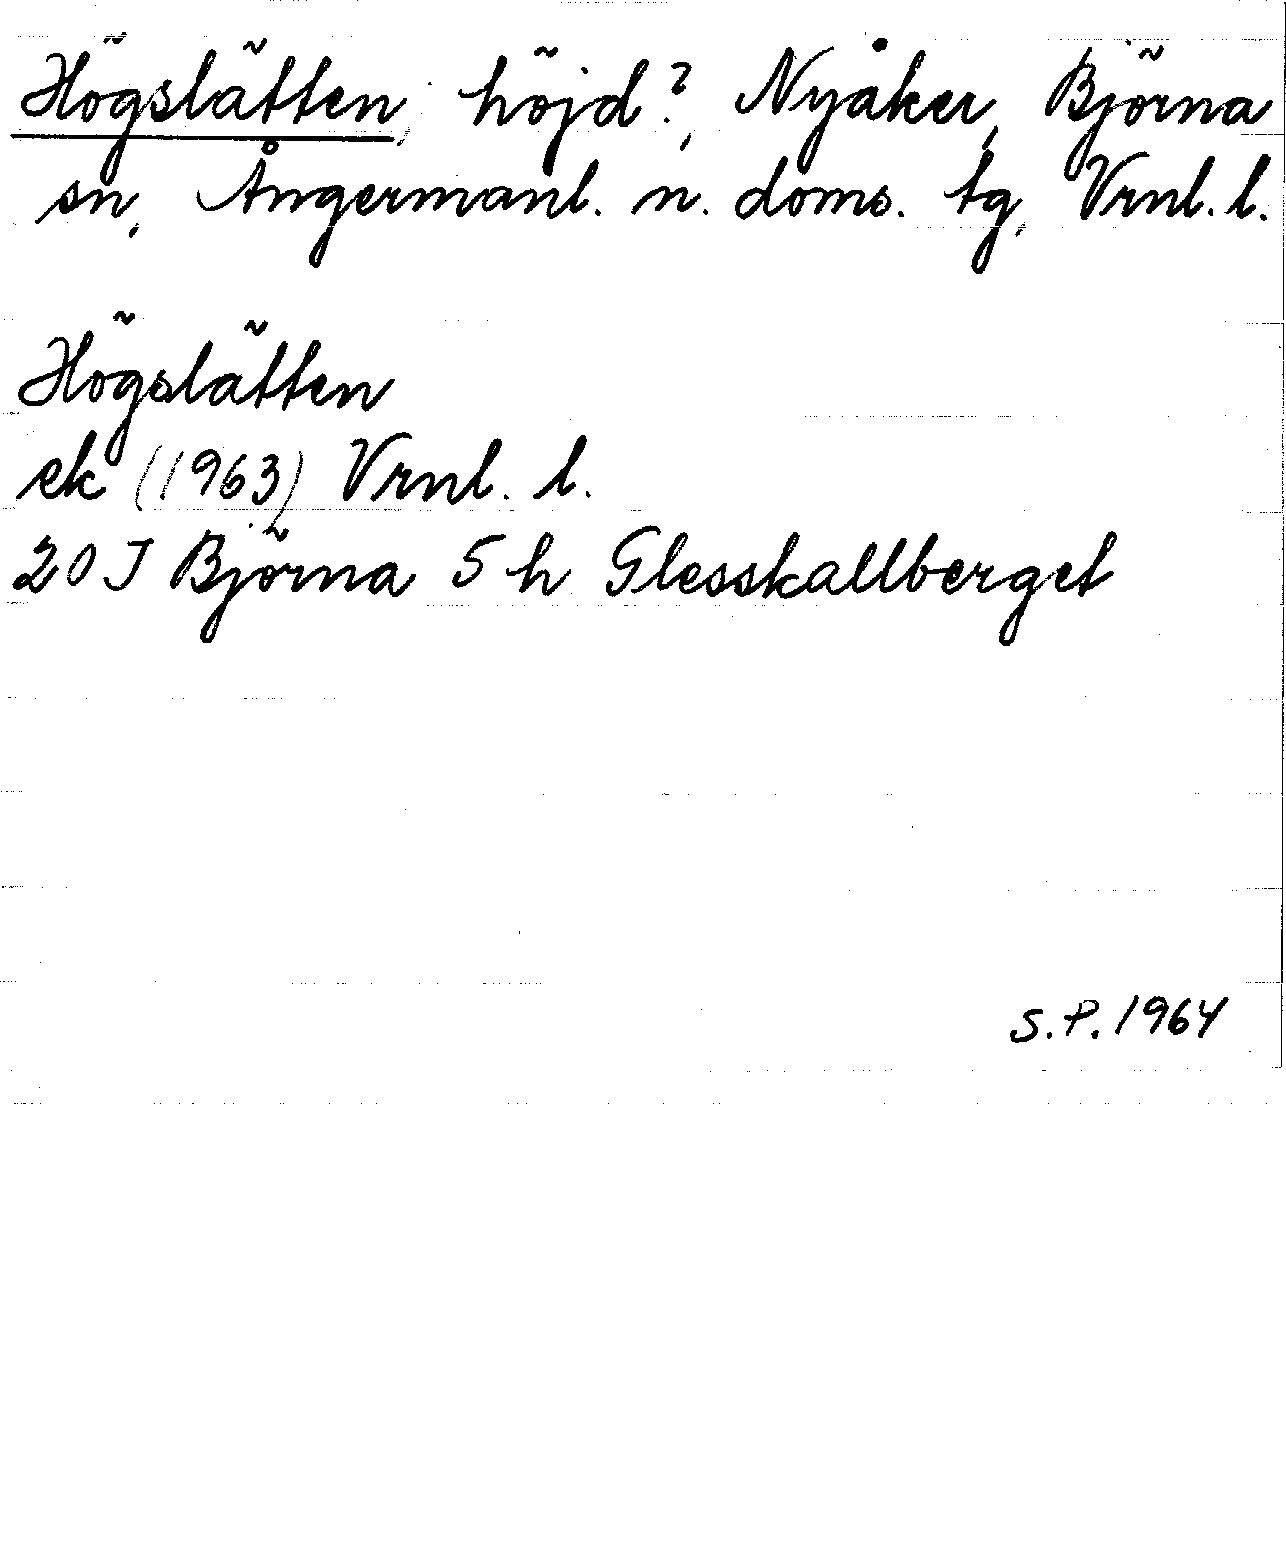 Högslätten, höjd?, Nyåker, Björna
sn, Ångermanl. n. doms. tg, Vrnl. l.
Högslätten
ek (1963) Vrnl. l.
20 J Björna 5 h Glesskallberget
S.P. 1964